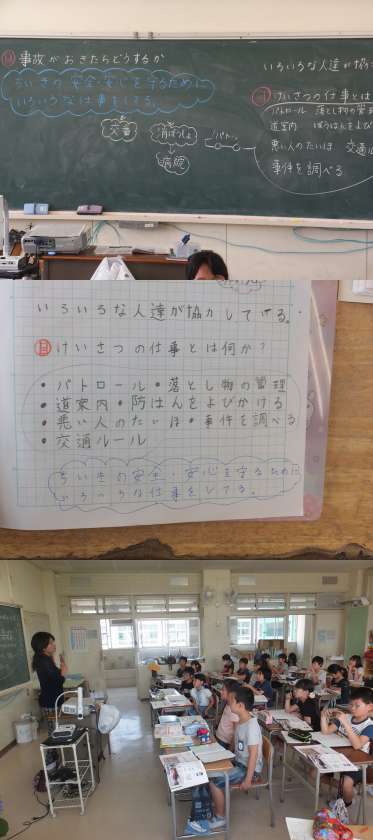 事故がおきたらどうするか
ちいきの安全・安心を守るために
いろいろな仕事をしてる。
交番
消ぼうしょ
パトカー
病院
いろいろな人達が協
けいさつの仕事とは
パトロール 落とし物の管
道案内 ぼうはんをよび
悪い人のたいほ 交通
事件を調べる
いろいろな人達が協力してける。
目 けいさつの仕事とは何か?
・パトロール・落とし物の管理
・道案内・防はんをよびかける
・悪い人のたいほ・事件を調べる
・交通ルール
ちいきの安全・安心を守るために
いろいろな仕事をしてる。